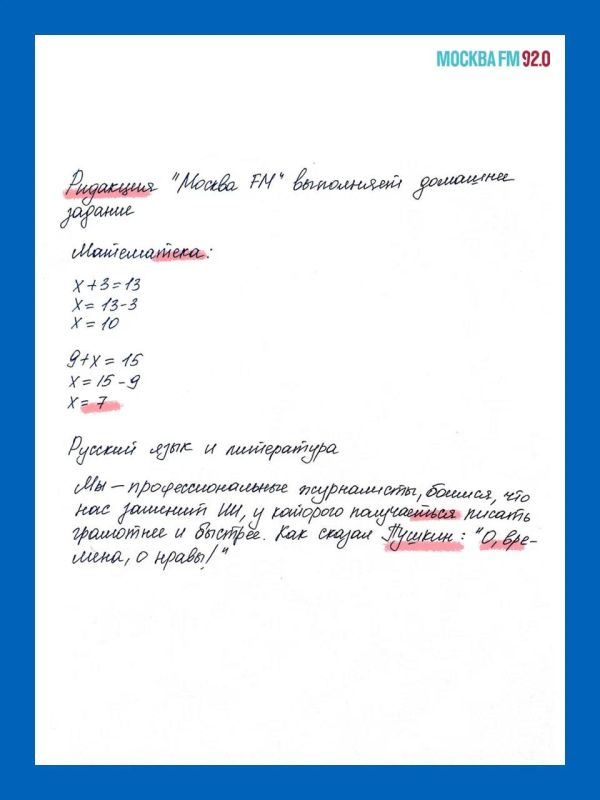 МОСКВА FM 92.0
Ридакция "Москва FM" выполняет домашнее
задание
Математека:
x+3=13
x=13-3
x=10
9+x=15
x=15-9
x=7
Русский язык и литература
Мы – профессиональные журналисты, боимся, что
нас заменит ИИ, у которого палучаеться писать
грамотнее и быстрее. Как сказал Пушкин: "О, вре-
мена, о нравы!"